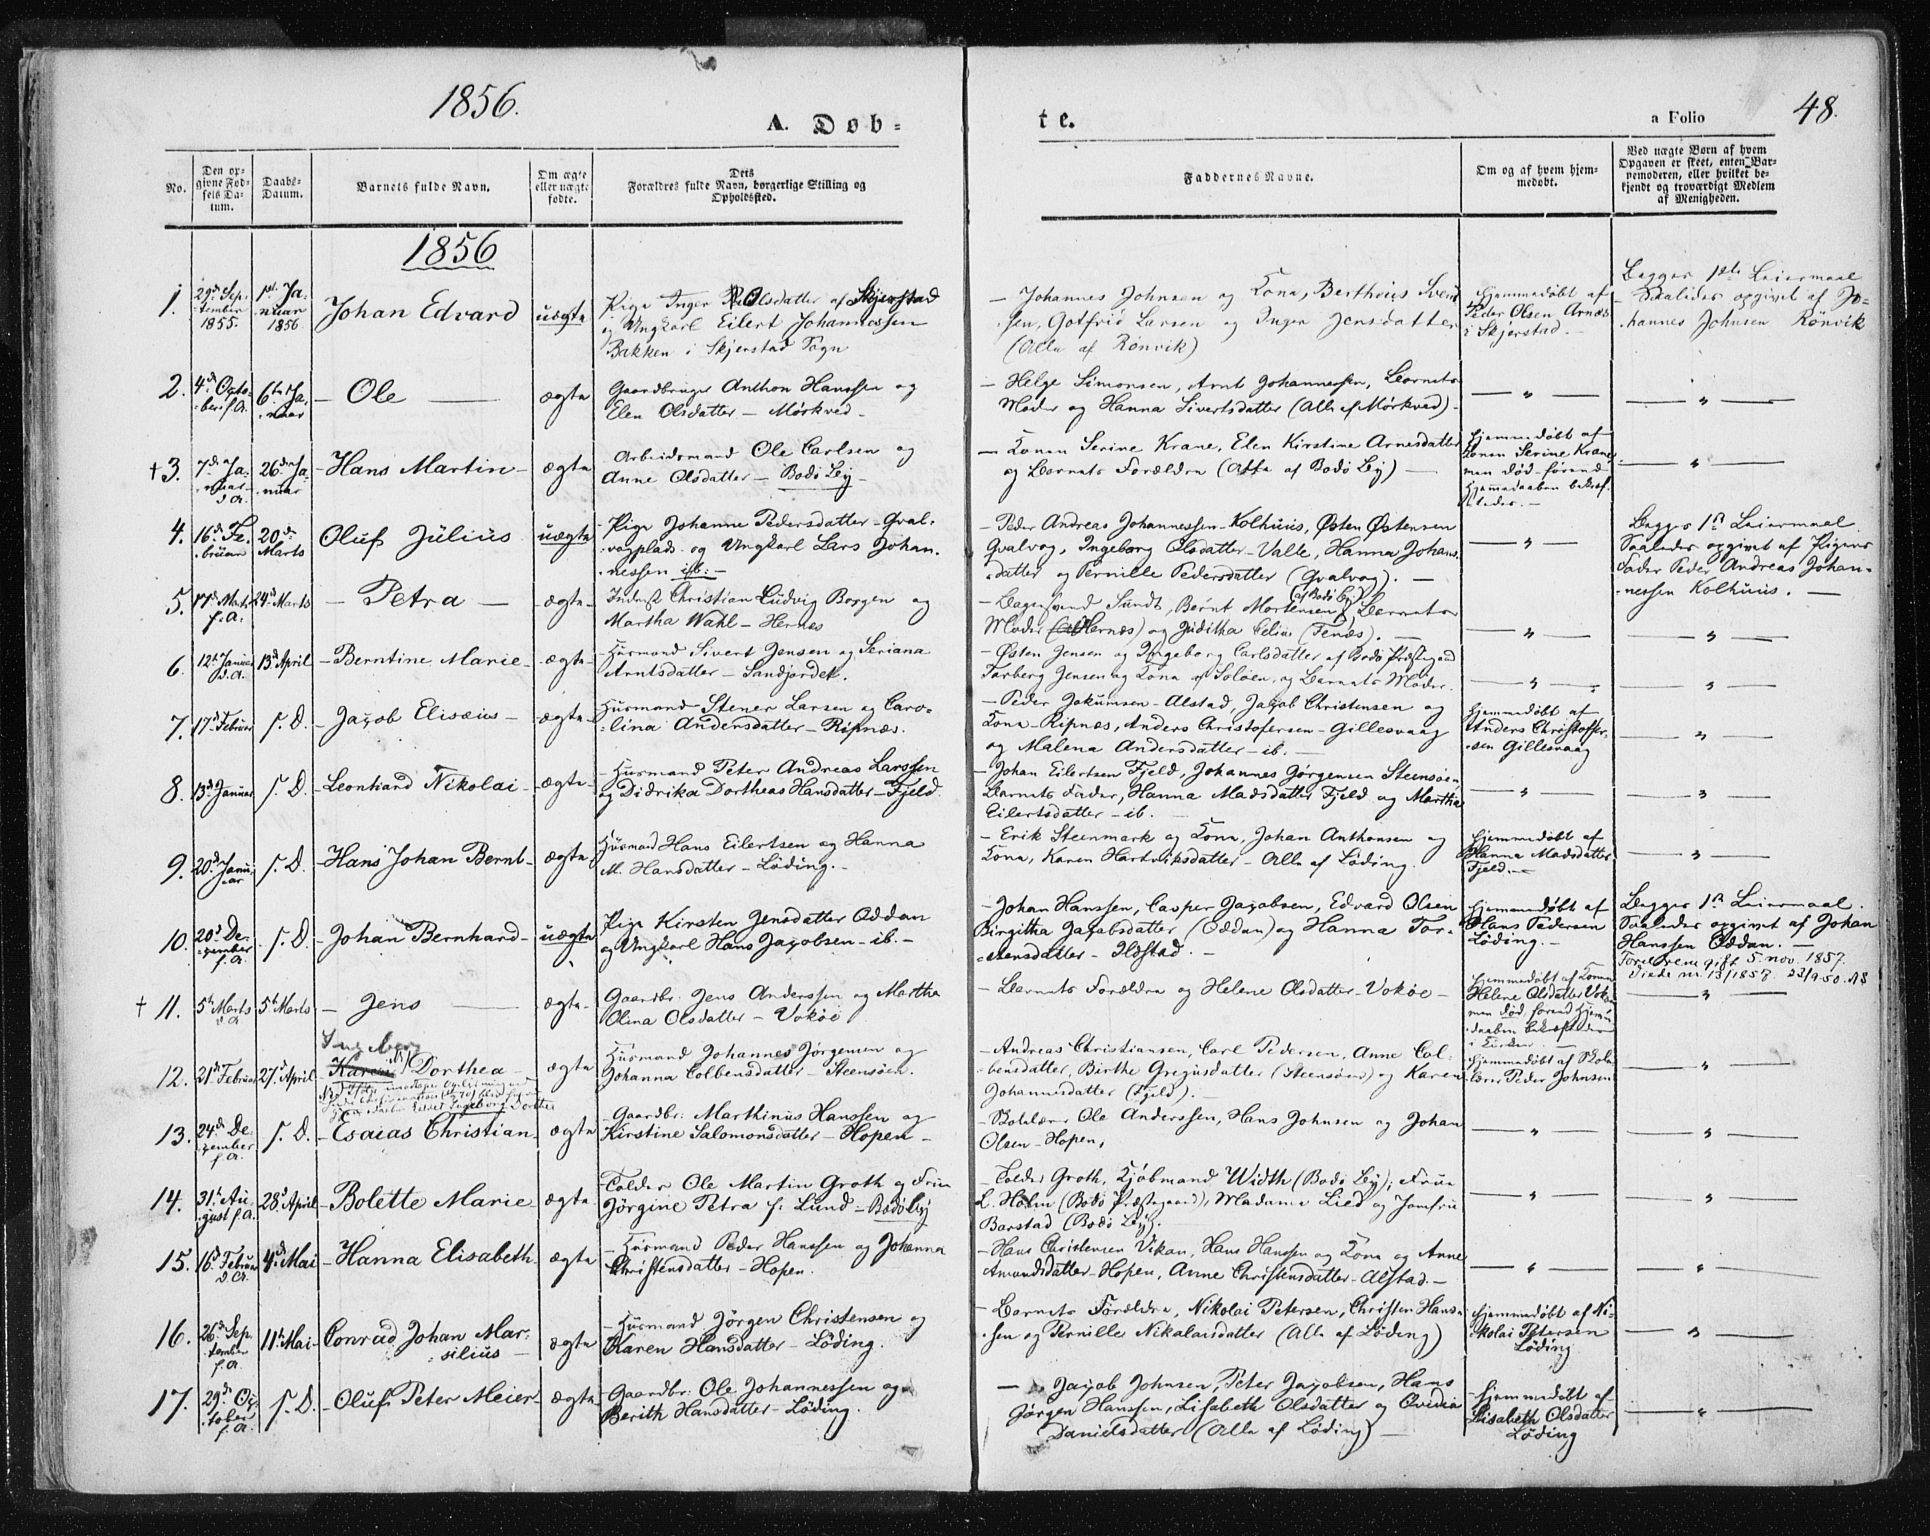 1856.
A. Dob=
te.
a Folio
48.
No.
Den op=
givne Fød=
sels Da=
tum.
Daabs=
Datum.
Barnets fulde Navn.
Om ægte
eller uægte
fødte.
Dets
Forældres fulde Navn, borgerlige Stilling og
Opholdssted.
Faddernes Navne.
Om og af hvem hjem=
medøbt.
Ved uægte Børn af hvem
Opgaven er skeet, enten Bar=
nemoderen, eller hvilket be=
kjendt og troværdigt Medlem
af Menigheden.
1856
1.
29de Sep-
tember
1855.
1ste Ja-
nuar
1856
Johan Edvard
uægte
Pige Inger Olsdatter af Skjerstad
og Ungkarl Eilert Johannessen
Bakken i Skjerstad Sogn
– Johannes Johnsen og Kona, Bertheus Svend-
sen, Gotfrid Larsen og Inger Jensdatter
(Alle af Rønvik)
Hjemmedøbt af
Peder Olsen Arnæs
i Skjerstad.
Begges 1ste Leiermaal
Saaledes opgivet af Jo-
hannes Johnsen Rønvik
2.
4de Octo-
ber f.A.
6te Ja-
nuar
– Ole –
ægte
Gaardbruger Anthon Hanssen og
Elen Olsdatter – Mørkved –
– Helge Simonsen, Arnt Johannessen, Barnets
Moder og Hanna Sivertsdatter (Alle af Mørkved) –
— " —
— " —
† 3.
7de Ja-
nuar
d. A.
26de Ja-
nuar
– Hans Martin –
ægte
– Arbeidsmand Ole Carlsen og
Anne Olsdatter – Bodø By –
– Konen Serine Krane, Elen Kirstine Arnesdatter
og Barnets Forældre (Alle af Bodø By) –
Hjemmedøbt af
Konen Serine Krane
men død førend
Hjemmedaaben bekræf-
tedes. –
— " —
4.
16de Fe-
bruar
20de
Marts
Oluf Julius
uægte
– Pige Johanne Pedersdatter – Qval-
vogplads og Ungkarl Lars Johan-
nessen ib: –
– Peder Andreas Johannessen – Kolhuus, Østen Østensen
Qvalvog, Ingeborg Olsdatter – Valle, Hanna Johans-
datter og Pernille Pedersdatter (Qvalvog). –
— " —
Begges 1ste Leiermaal.
Saaledes opgivet af Pigens
Fader Peder Andreas Johan-
nessen Kolhuus. –
5.
f. A.
24de Marts
– Petra –
ægte
Inderst Christian Ludvig Borgen og
Martha Wahl – Hernes
(af Bodø By)
Sundt, Bernt Mortensen, Barnets
Moder (Hernæs) og Juditha Celius (Fenæs). –
— " —
— " —
6.
12te Januar
d. A.
13de April
– Berntine Marie –
ægte
– Husmand Sivert Jensen og Seriana
Arntsdatter – Sandjordet.
– Østen Jensen og Ingeborg Carlsdatter af Bodø Præstegaard
Torberg Jensen og Kona af Soløen, og Barnets Moder.
— " —
— " —
7.
17de Februar
s. D.
– Jacob Elisæus –
ægte
Husmand Stener Larsen og Caro-
lina Andersdatter – Ripnæs.
– Peder Jakumsen – Alstad, Jacob Christensen og
Kona – Ripnæs, Anders Christofersen – Gillesvaag
og Malena Andersdatter – ib. –
Hjemmedøbt af
Anders Christoffer-
sen Gillesvaag
— " —
8.
13de Januar
s. D.
– Leonhard Nikolai –
ægte
– Husmand Peter Andreas Larssen
og Didrika Dorthea Hansdatter – Fjeld.
– Johan Eilertsen Fjeld, Johannes Jørgensen Steensøen
Barnets Fader, Hanna Madsdatter Fjeld og Martha
Eilertsdatter – ib. –
— " —
— " —
9.
20de Janu-
ar
s. D.
– Hans Johan Bernt –
ægte
Husmand Hans Eilertsen og Hanna
M. Hansdatter – Løding. –
– Erik Steenmark og Kona, Johan Anthonsen og
Kona, Karen Hartviksdatter – Alle af Løding.
Hjemmedøbt af
Hanna Madsdatter
Fjeld. –
— " —
10.
20de De-
cember
f. A.
s. D.
– Johan Bernhard –
uægte
Pige Kirsten Jensdatter Oddan
og Ungkarl Hans Jacobsen – ib. –
– Johan Hanssen, Casper Jacobsen, Edvard Olsen
Birgitha Jacobsdatter (Oddan) og Hanna Tor-
stensdatter – Ilstad. –
Hjemmedøbt af
Hans Pedersen
Løding. –
Begges 1ste Leiermaal.
Saaledes opgivet af Johan
Hanssen Oddan. –
Foreldrene gift 5. nov. 1857.
Viede nr. 13/1857. 23/9-50. AS
† 11.
5te Marts
d. A
5te Marts
– Jens –
ægte
– Gaardbr. Jens Anderssen og Martha
Olina Olsdatter – Vokøe
– Barnets Forældre og Helene Olsdatter – Vokøe –
Hjemmedøbt af Konen
Helene Olsdatter Vokøe
men død, førend Hjem-
daaben bekræftedes
i Kirken. –
— " —
12.
21de Februar
27de April
Ingeborg
Karen Dorthea –
ægte
Husmand Johannes Jørgensen og
Johanna Colbensdatter – Steensøen.
– Andreas Christiansen, Carl Pedersen, Anne Col-
bensdatter, Birthe Gregusdatter (Steensøen) og Karen
Johannesdatter (Fjeld). –
Hjemmedøbt af Skole-
lærer Peder Johnsen
— " —
13.
24de De-
cember
f. A.
s. D.
– Esaias Christian
ægte
– Gaardbr: Marthinus Hanssen og
Kirstine Salomonsdatter – Hopen –
– Skolelærer Ole Anderssen, Hans Johnsen og Johan
Olsen – Hopen,
— " —
— " —
14.
31te Au-
gust f.A.
28de April
– Bolette Marie
ægte
– Tolder Ole Martin Groth og Frue
Jørgine Petra f. Lund – Bodø By
– Tolder Groth, Kjøbmand Width (Bodø By), Frue
L. Holm (Bodø Præstegaard), Madame Lied og Jomfru
Barstad (Bodø By).
— " —
— " —
15.
16de Februar
d. A.
4de Mai
– Hanna Elisabeth
ægte
– Husmand Peder Hanssen og Johanna
Christensdatter – Hopen.
– Hans Christensen Vikan, Hans Hanssen og Kona og Anne
Amundsdatter – Hopen, Anne Christensdatter – Alstad. –
— " —
— " —
16.
26de Sep-
tember
f. A.
11te Mai
Conrad Johan Mar-
silius –
ægte
– Husmand Jørgen Christensen og
Karen Hansdatter – Løding.
– Barnets Forældre, Nikolai Petersen, Christen Hans-
sen og Pernille Nikolaisdatter (Alle af Løding)
Hjemmedøbt af Ni-
kolai Petersen
Løding
— " —
17.
29de Oc-
tober
f. A.
s. D.
– Oluf Peter Meier –
ægte
– Gaardbr: Ole Johannessen og
Berith Hansdatter – Løding.
– Jacob Johnsen, Peter Jacobsen, Hans
Jørgen Hanssen, Lisabeth Olsdatter og Ovidia
Danielsdatter (Alle af Løding) –
Hjemmedøbt af
Lisabeth Olsdatter
Løding
— " —